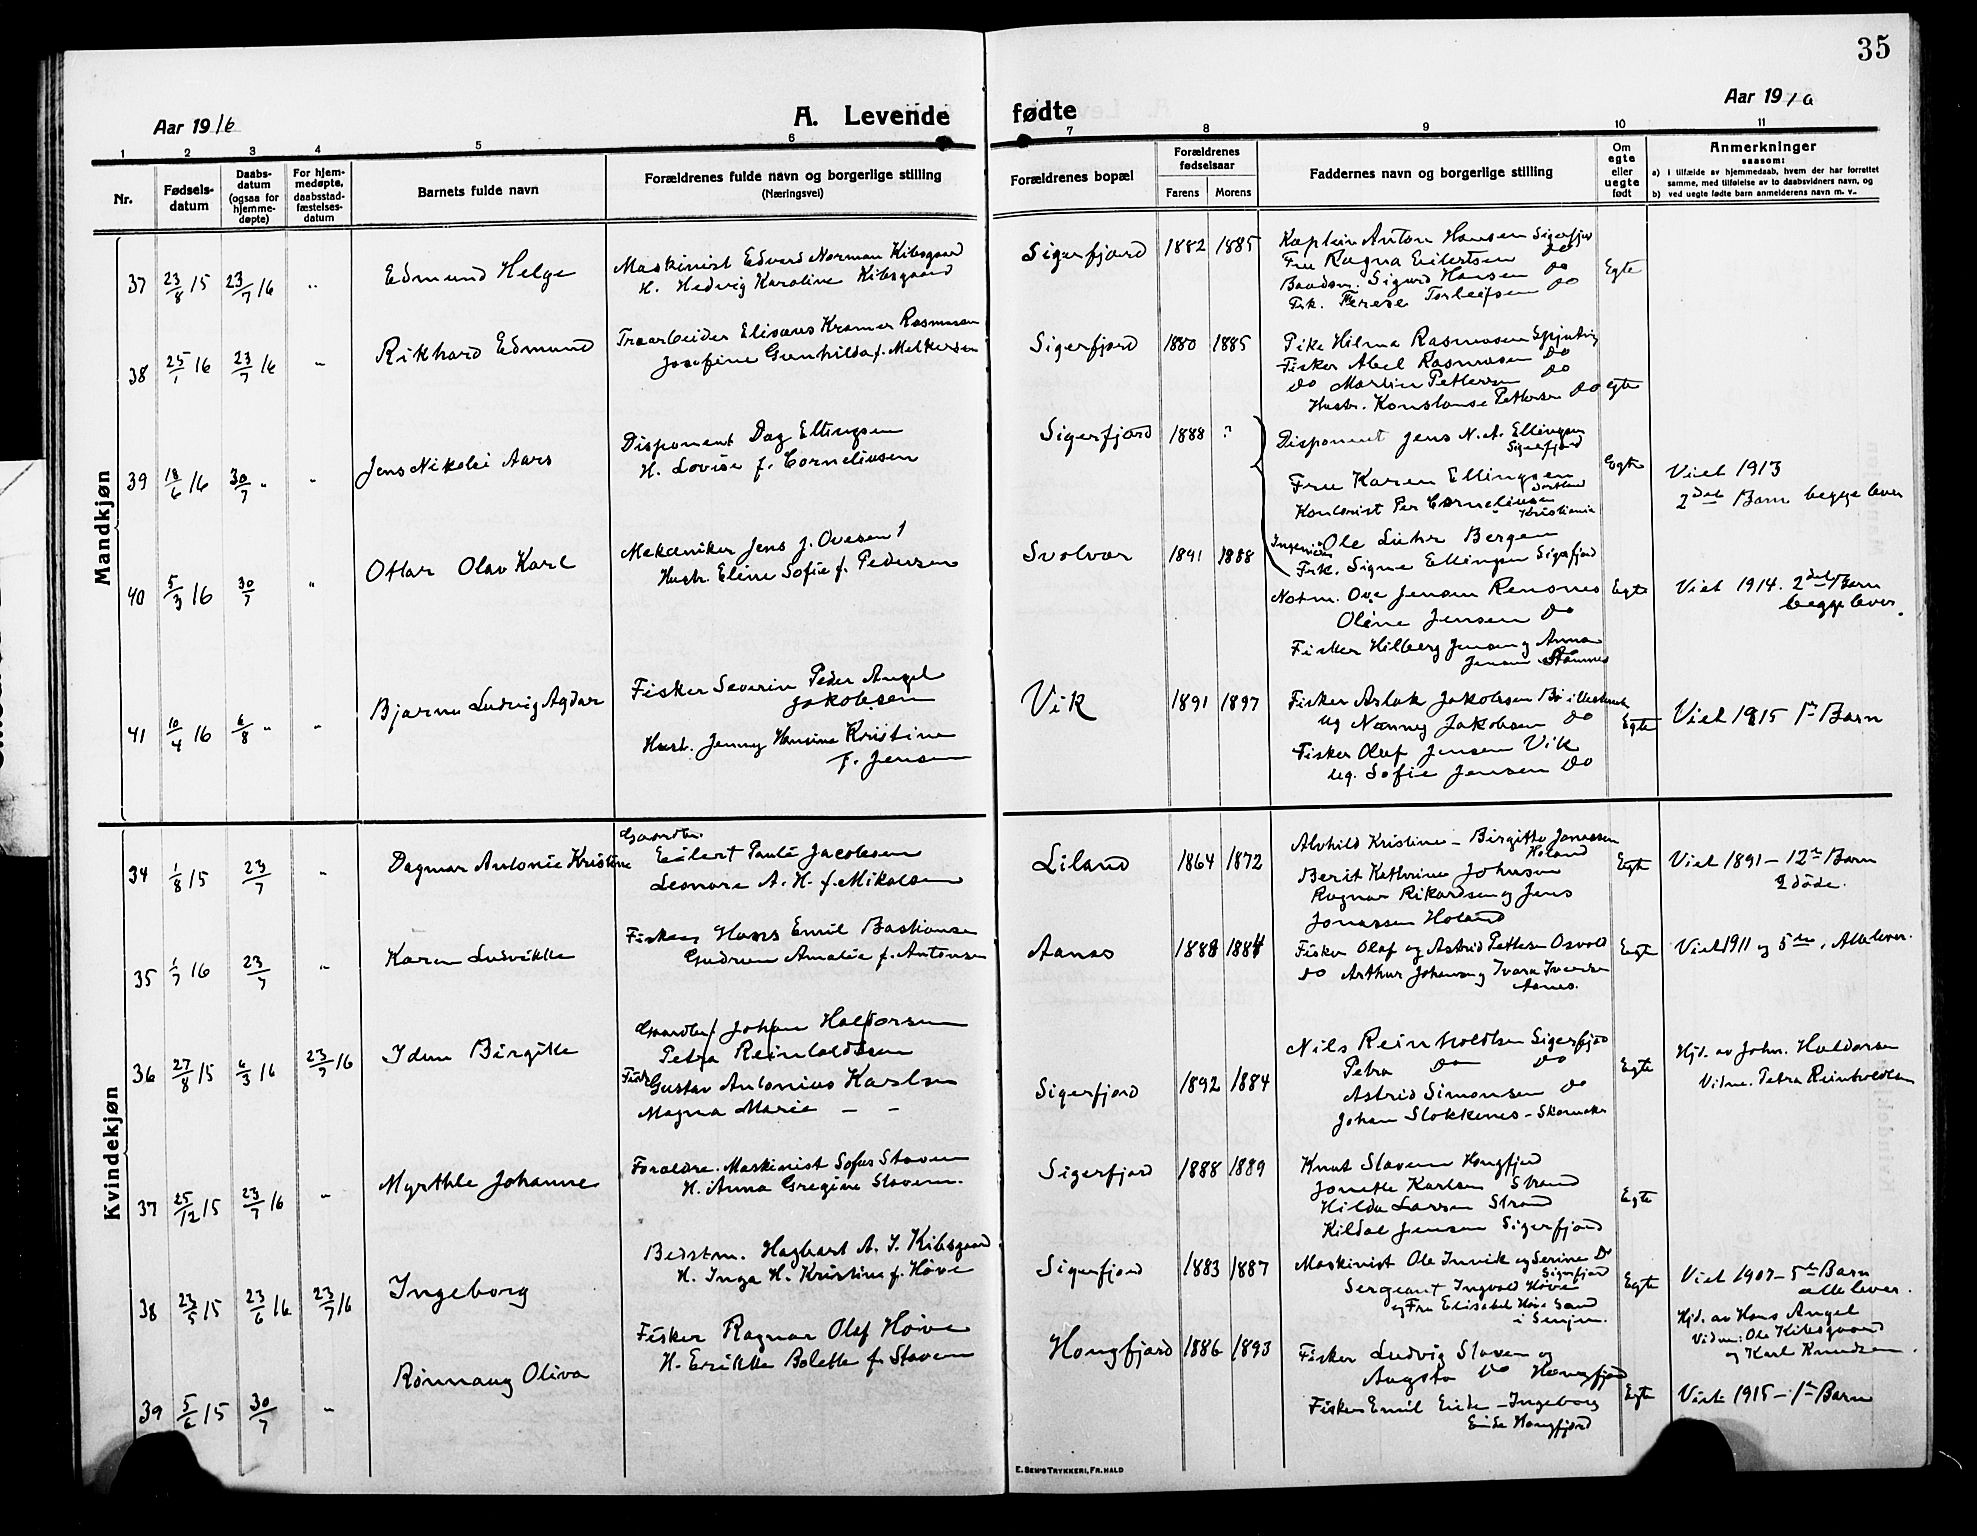 35
Aar 1916
A. Levende fødte
Aar 1916
1 2 3 4 5 6 7 8 9 10 11
Nr.
Fødsels-
datum
Daabs-
datum
(ogsaa for
hjemme-
døpte)
For hjem-
medøpte,
daabsstad-
fæstelses-
datum
Barnets fulde navn
Forældrenes fulde navn og borgerlige stilling
(Næringsvei)
Forældrenes bopæl
Forældrenes
fødselsaar
Farens Morens
Faddernes navn og borgerlige stilling
Om
egte
eller
uegte
født
Anmerkninger
saasom:
a) i tilfælde av hjemmedaab, hvem der har forrettet
samme, med tilføielse av to daabsvidners navn, og
b) ved uegte fødte barn anmelderens navn m. v.
Mandkjøn
37 23/8 15 23/7 16 " Edmund Helge
Maskinist Edvard Norman Kibsgaard
H. Hedvig Karoline Kibsgaard
Sigerfjord 1882 1885
Kaptein Anton Hansen Sigerfjor
Fru Ragna Eilertsen do
Baadsm. Sigurd Hansen do
Frk. Terese Torleifsen do
Egte
38 25/1 16 23/7 16 " Rikhard Edmund
Træarbeider Elisæus Kramer Rasmussen
Josefine Gunhilda f. Melkersen
Sigerfjord 1880 1885
Pike Hilma Rasmussen
Fisker Abel Rasmussen do
do Martin Pettersen do
Hustr. Konstanse Pettersen do
egte
39 18/6 16 30/7 " " Jens Nikolai Aars
Disponent Dag Ellingsen
H. Lovise f. Corneliusen
Sigerfjord 1888 ?
Disponent Jens N. A. Ellingsen
Sigerfjord
Fru Karen Ellingsen
Sortland
Kontorist Per Corneliusen
Kristiania
Ingeniør Ole Luhr Bergen
Frk. Signe Ellingsen Sigerfjord
Egte
Viet 1913
2det Barn begge lever
40 5/3 16 30/7 " Ottar Olav Karl
Mekaniker Jens J. Ovesen
Hustr. Eline Sofie f. Pedersen
Svolvær 1891 1888
Notm. Ove Jensen Rensnes
Oline Jensen do
Fisker Hilberg Jensen og Anna
Jensen
Egte
Viet 1914. 2det Barn
begge lever.
41 10/4 16 6/8 " " Bjarne Ludvig Agdar
Fisker Severin Peder Angel
Jakobsen
Hust. Jenny Hansine Kristine
f. Jensen
Vik 1891 1897
Fisker Aslak Jakobsen Bø i Vesteraal
og Nanny Jakobsen do
Fisker Olaf Jensen Vik
og Sofie Jensen do
Egte
Viet 1915 1ste Barn
Kvindekjøn
34 1/8 15 23/7 " Dagmar Antonie Kristine
Gaardbr.
Eilert Paul Jacobsen
Leonore A. H. f. Mikalsen
Liland 1864 1872
Alvhild Kristine - Birgitte Jonassen
Holand
Berit Kathrine Johnsen
Ragnar Rikardsen og Jens
Jonassen Holand
Egte
Viet 1891 - 12te Barn
2 døde.
35 1/7 16 23/7 " Karen Ludvikke
Fisker Hans Emil Bastiansen
Gudrun Amalie f. Antonsen
Aanes 1888 1884
Fisker Olaf og Astrid Pettersen Osvold
do Arthur Johansen og Ivara Iversen
Aanes.
Egte
Viet 1911 og 5te, Alle lever.
36 27/8 15 6/3 16 23/7 16 Idun Birgitte
Gaardbr. Johan Haldorsen
Petra Reinholdtsen
Fisk. Gustav Antonius Karlsen
Magna Marie - -
Sigerfjord 1892 1884
Nils Reinholdtsen Sigerfjord
Petra do do
Astrid Simonsen do
Johan Slokkenes - Skomaker
Egte
Hjd. av John. Haldorsen
Vidne. Petra Reinholdtsen
37 25/12 15 23/7 16 " Myrthle Johanne
Forældre. Maskinist Sofus Staven
H. Anna Gregine Staven.
Sigerfjord 1888 1889
Knut Slaven Hongfjord
Jonette Karlsen Strand
Hilda Larsen Strand
Kildal Jensen Sigerfjord
Egte
38 23/5 15 23/6 16 23/7 16 Ingeborg
Bedstm. Hagbart A. J. Kibsgaard
H. Inga H. Kristine f. Høve
Sigerfjord 1883 1887
Maskinist Ole Inuvik og Serine Do
Sigerfjord
Sergeant Ingvald Høve
og Fru Elisabet Høve Sand
i Senjen.
Egte
Viet 1907 - 5te Barn
alle lever.
Hjd. av Hans Angel
Vidne: Ole Kibsgaard
og Karl Knudsen.
39 5/6 15 30/7 " Rønnaug Oliva
Fisker Ragnar Olaf Høve
H. Erikke Bolette f. Staven
Hongfjord 1886 1893
Fisker Ludvig Slaven og
Augsta do Hongfjord
Fisker Emil Eide - Ingeborg
Eide Hongfjord
Egte
Viet 1915 - 1ste Barn
E. SEM'S TRYKKERI, FR. HALD